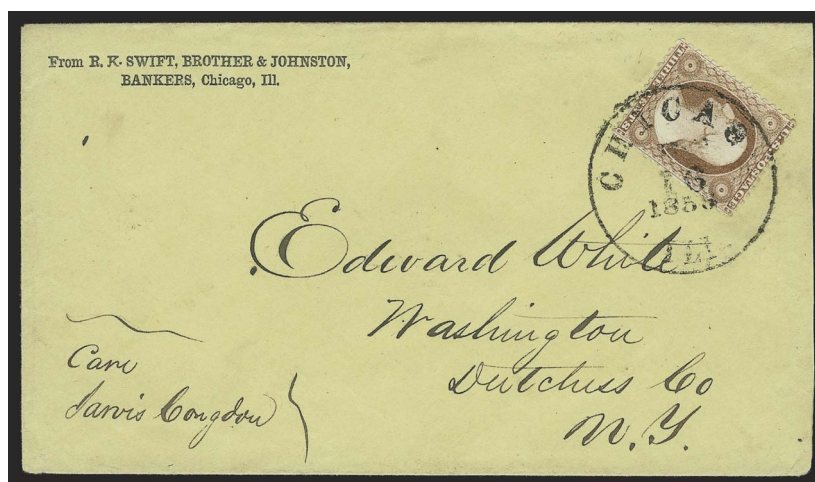 From R. K. SWIFT, BROTHER & JOHNSTON,
BANKERS, Chicago, Ill.
CHICAGO
16
ILL
Edward White
Washington
Dutchess Co
N.Y.
Care
Jarvis Congdon